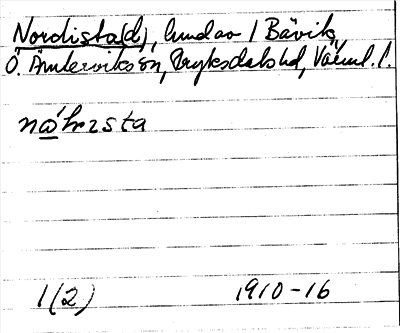 Nordista(d), hmd av 1 Bävik,
Ö. Ämterviks sn, Fryksdals hd, Värml. l.
1(2) 1910-16